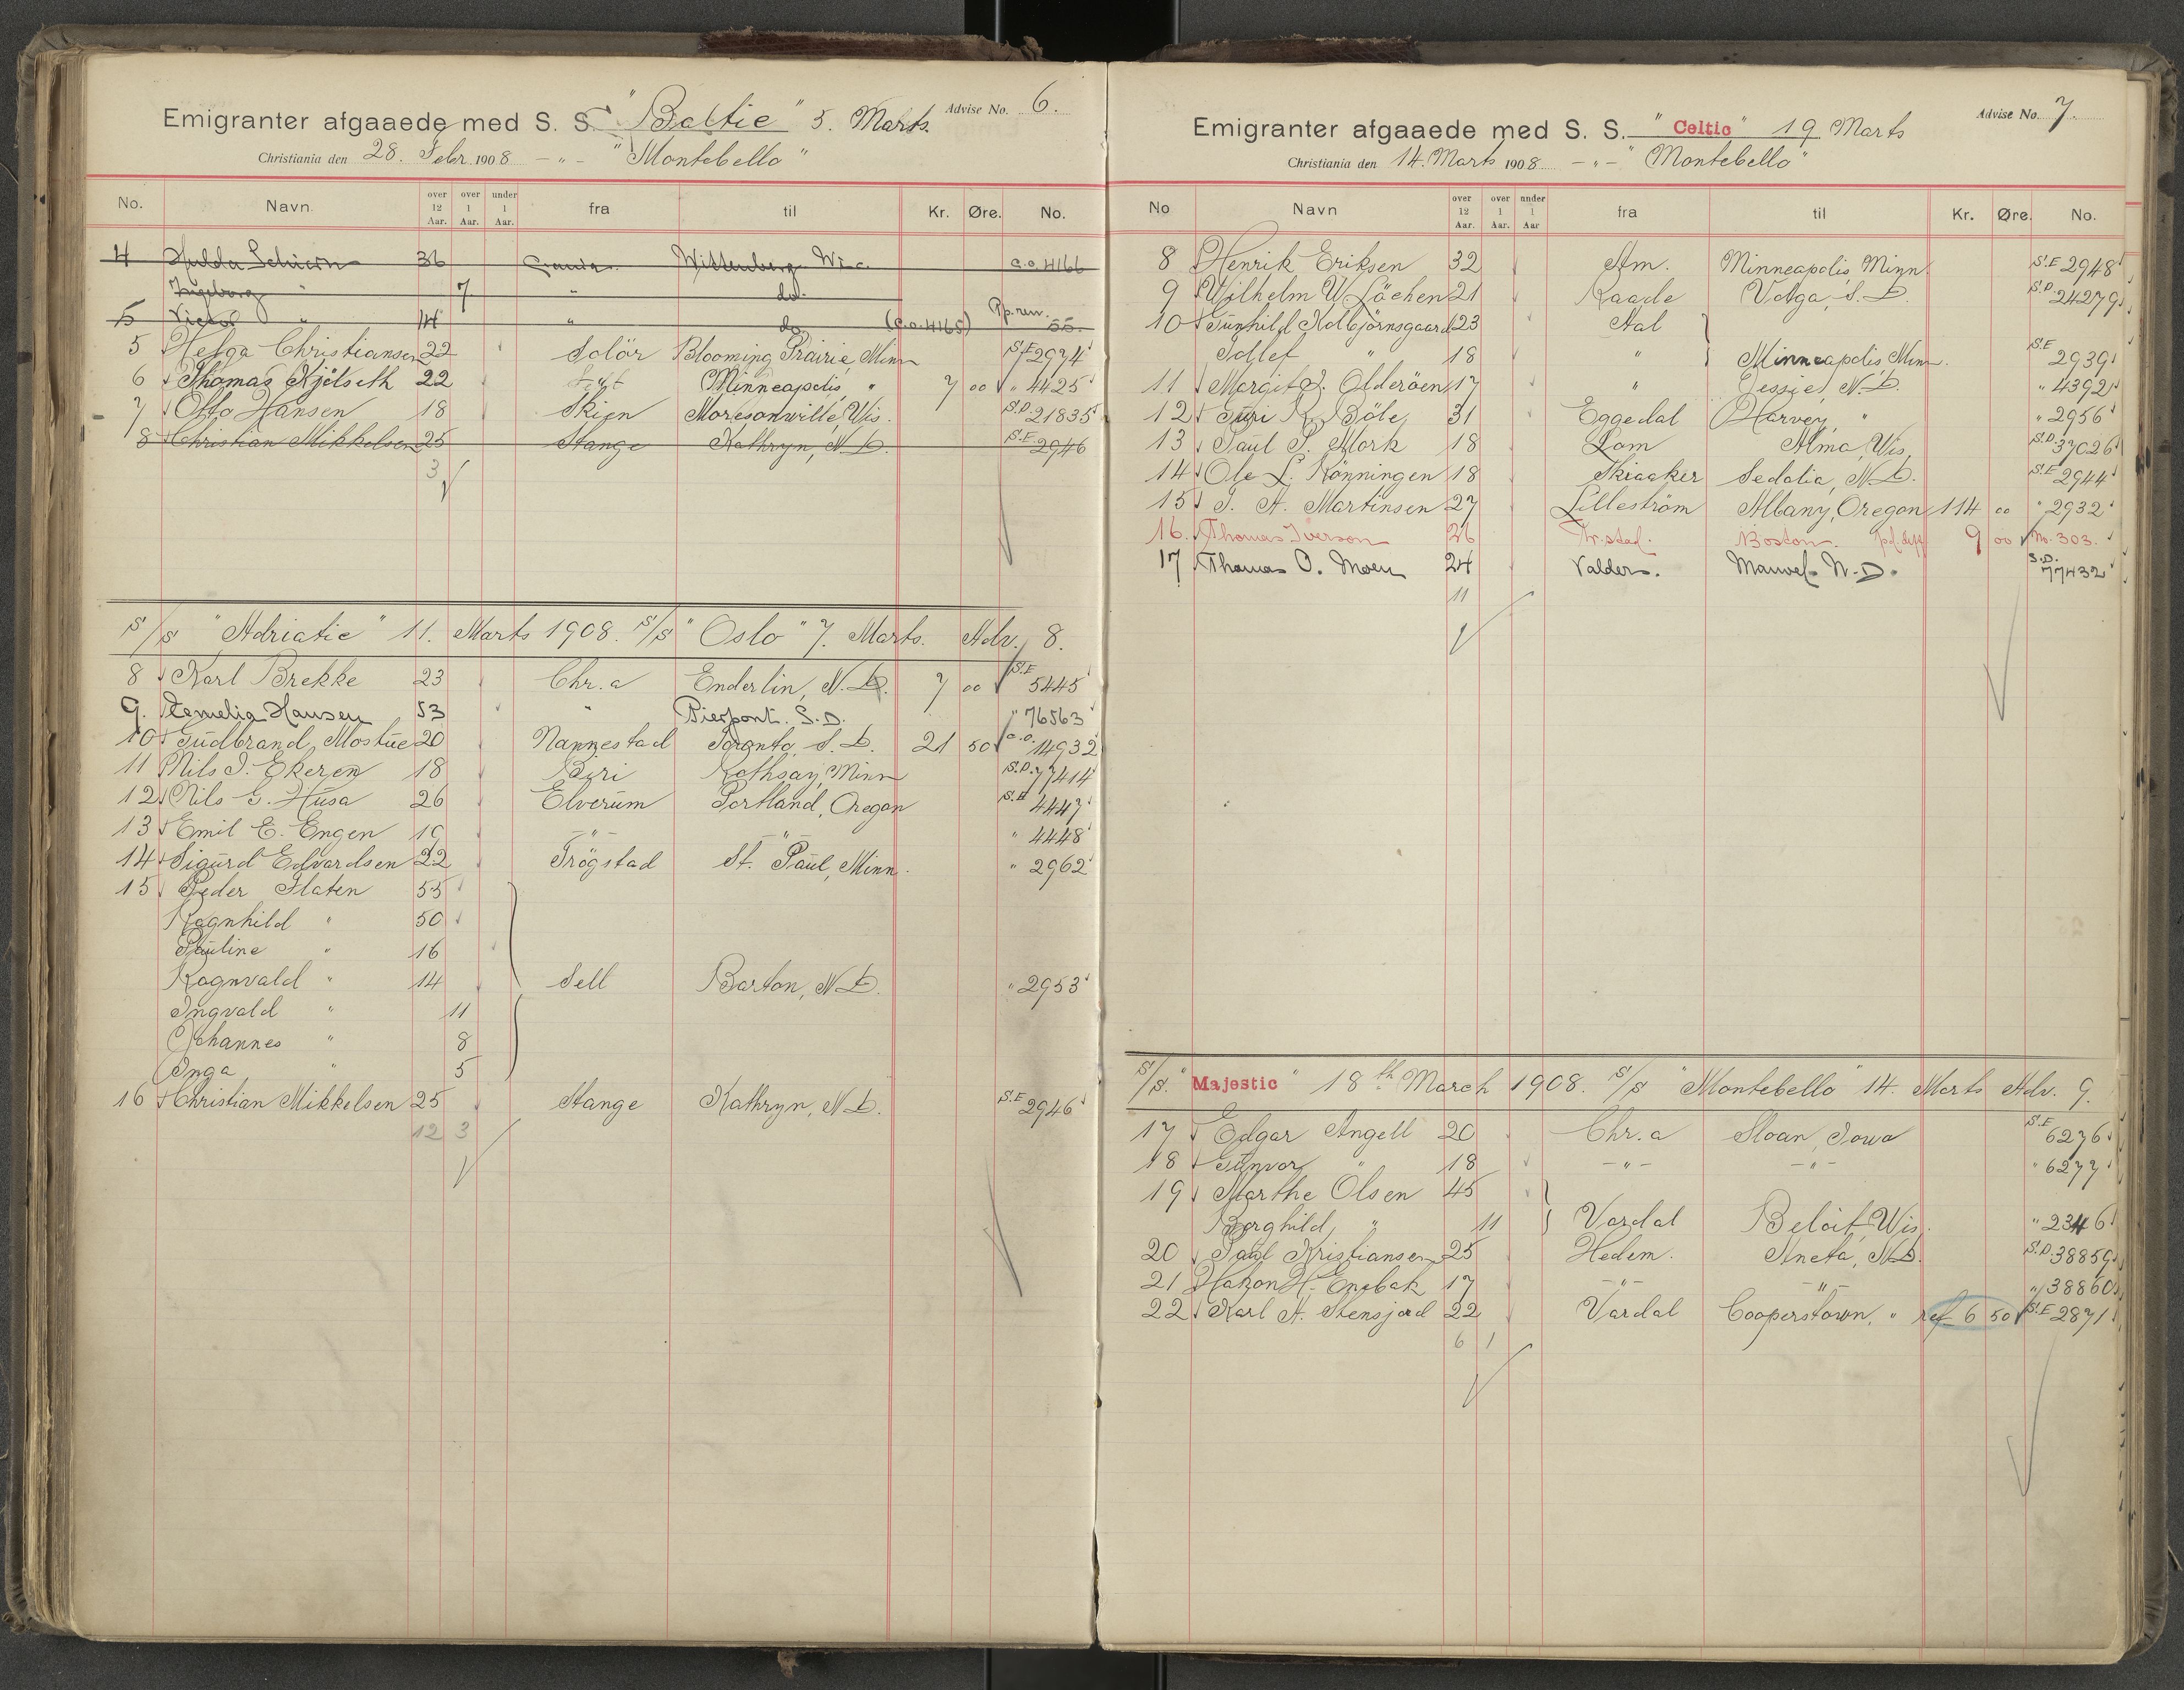 Emigranter afgaaede med S. S. "Baltic" 5. Marts. Advise No. 6.
Christiania den 28. Febr. 1908 - " - "Montebello"
No. Navn over 12 Aar. over 1 Aar. under 1 Aar. fra til Kr. Øre. No.
4 Hulda Schiern 36 Wittenberg Wis. C.O. 4166
Ingeborg " 7 " do.
5 Victor " 14 " do (C.O. 4165) Pp. rew. 55.
5 Helga Christiansen 22 Solör Blooming Prairie, Minn S.E 2974
6 Thomas Kjölseth 22 Minneapolis, " 7 00 " 4425
7 Otto Hansen 18 Skien Moresonville, Wis. S.D. 21835
8 Christian Mikkelsen 25 Stange Kathryn, N.D. S.E 2946
3
S/S "Adriatic" 11. Marts 1908. S/S "Oslo" 7. Marts. Adv. 8.
8 Karl Brekke 23 Chr.a Enderlin, N.D. 7 00 S.E 5445
9. Hansen 53 " Pierpont. S.D. " 76563
10 Gudbrand Mostue 20 Nannestad Toronto, S.D. 21 50 C.O. 14932
11 Nils J. Ekeren 18 Biri Rothsay, Minn S.D. 77414
12 Nils G. Husa 26 Elverum Portland, Oregon S.E 4447
13 Emil E. Engen 19 - " - - " - " 4448
14 Sigurd Edvardsen 22 Trögstad St. Paul, Minn. " 2962
15 Peder Flaten 55
Ragnhild " 50
Pauline " 16
Ragnvald " 14 Sell Barton, N.D. " 2953
Ingvald " 11
Johannes " 8
Inga " 5
16 Christian Mikkelsen 25 Stange Kathryn, N.D. S.E 2946
12 3
Emigranter afgaaede med S. S. "Celtic" 19 Marts Advise No. 7.
Christiania den 14. Marts 1908 - " - "Montebello"
No Navn over 12 Aar. over 1 Aar. under 1 Aar fra til Kr. Øre. No.
8 Henrik Eriksen 32 Am. Minneapolis, Minn. S.E 2948
9 Wilhelm W. Löchen 21 Raade Volga, S.D. S.D. 24279
10 Gunhild Kolbjörnsgaard 23 Aal
Tollef " 18 " Minneapolis, Minn. S.E 2939
11 Margit J. Olderöen 17 " Jessie, N.D. " 4392
12 Guri K. Böle 31 Eggedal Harvey, " " 2956
13 Paul P. Mork 18 Lom Alma, Wis. S.D. 37026
14 Ole L. Rönningen 18 Skiaaker Sedalia, N.D. S.E 2944
15 J. A. Martinsen 27 Lilleström Albany, Oregon 114 00 " 2932
16. Thomas Iverson 26 Fr.stad. Boston. 9 00 No. 303.
17 Thomas O. Moen 24 Valders. Manvel N.D. S.D. 77432
11
S/S. "Majestic" 18th March 1908. S/S "Montebello" 14. Marts Adv. 9.
17 Edgar Angell 20 Chr.a Sloan, Iowa S.E 6276
18 Gunvor " 18 - " - - " - " 6277
19 Marthe Olsen 45
Borghild " 11 Vardal Beloit, Wis. " 2346
20 Paul Kristiansen 25 Hedem. Aneta, N.D. S.D. 38859
21 Hakon H. Enebak 17 - " - - " - " 38860
22 Karl A. Stensjord 22 Vardal Cooperstown, " ref 6 50 S.E 2871
6 1